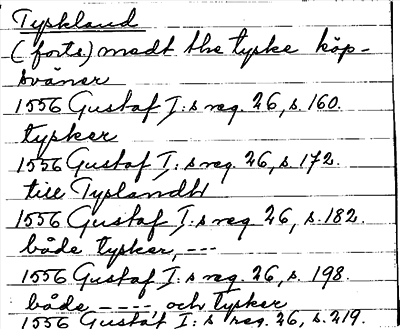 Tyskland
(forts) medt the tyske köp-
sväner
1556 Gustaf I:s reg. 26, s. 160.
tysker
1556 Gustaf I:s reg. 26, s. 172.
till Tyslandh
1556 Gustaf I:s reg. 26, s. 182.
både tysker, ---
1556 Gustaf I:s reg. 26, s. 198.
både ---- och tysker
1556 Gustaf I:s reg. 26, s. 219.